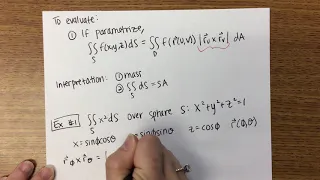 To evaluate:
① If parametrize,
∬_S f(x,y,z)dS = ∬_D f(r⃗(u,v)) |r⃗u × r⃗v| dA
Interpretation: ① mass
② ∬_S dS = SA
Ex #1 ∬_S x² dS over sphere S: x²+y²+z²=1
x = sinϕcosθ = sinϕsinθ z = cosϕ r⃗(ϕ,θ)
r⃗ϕ × r⃗θ =